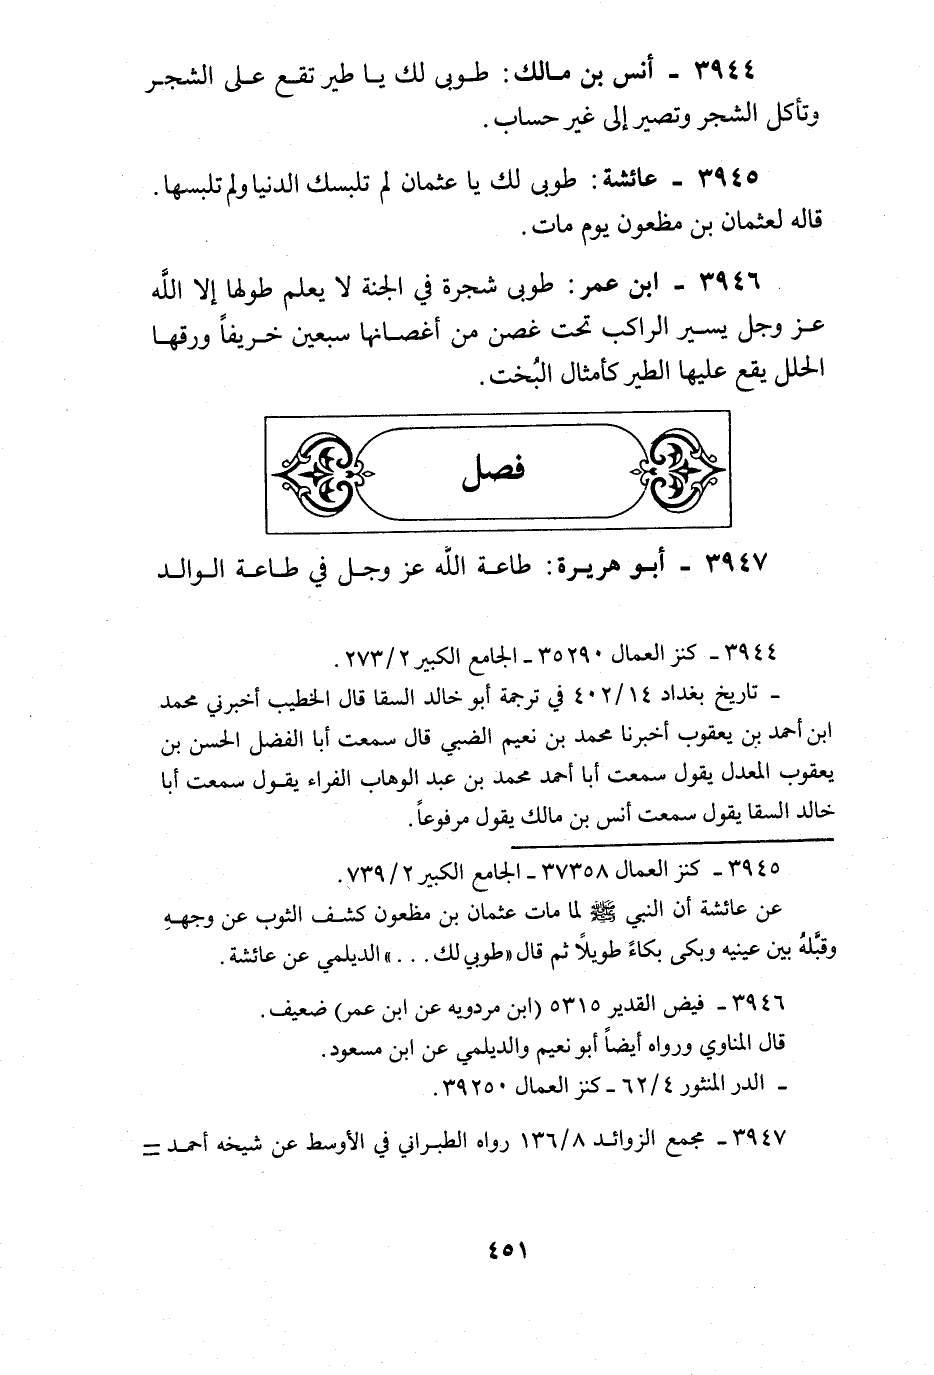 ٣٩٤٤ ـ أنس بن مالك: طوبى لك يا طير تقع على الشجر
وتأكل الشجر وتصير إلى غير حساب.
٣٩٤٥ ـ عائشة: طوبى لك يا عثمان لم تلبسك الدنيا ولم تلبسها.
قاله لعثمان بن مظعون يوم مات.
٣٩٤٦ ـ ابن عمر: طوبى شجرة في الجنة لا يعلم طولها إلا اللَّه
عز وجل يسير الراكب تحت غصن من أغصانها سبعين خريفاً ورقها
الحلل يقع عليها الطير كأمثال البُخت.
فصل
٣٩٤٧ ـ أبو هريرة: طاعة اللَّه عز وجل في طاعة الوالد
٣٩٤٤ ـ كنز العمال ٣٥٢٩٠ ـ الجامع الكبير ٢٧٣/٢.
ـ تاريخ بغداد ٤٠٢/١٤ في ترجمة أبو خالد السقا قال الخطيب أخبرني محمد
ابن أحمد بن يعقوب أخبرنا محمد بن نعيم الضبي قال سمعت أبا الفضل الحسن بن
يعقوب المعدل يقول سمعت أبا أحمد محمد بن عبد الوهاب الفراء يقول سمعت أبا
خالد السقا يقول سمعت أنس بن مالك يقول مرفوعاً.
٣٩٤٥ ـ كنز العمال ٣٧٣٥٨ ـ الجامع الكبير ٧٣٩/٢.
عن عائشة أن النبي ﷺ لما مات عثمان بن مظعون كشف الثوب عن وجههِ
وقبَّلهُ بين عينيه وبكى بكاءً طويلاً ثم قال «طوبي لك . . .» الديلمي عن عائشة.
٣٩٤٦ ـ فيض القدير ٥٣١٥ (ابن مردويه عن ابن عمر) ضعيف.
قال المناوي ورواه أيضاً أبو نعيم والديلمي عن ابن مسعود.
ـ الدر المنثور ٦٢/٤ ـ كنز العمال ٣٩٢٥٠.
٣٩٤٧ ـ مجمع الزوائد ١٣٦/٨ رواه الطبراني في الأوسط عن شيخه أحمد =
٤٥١